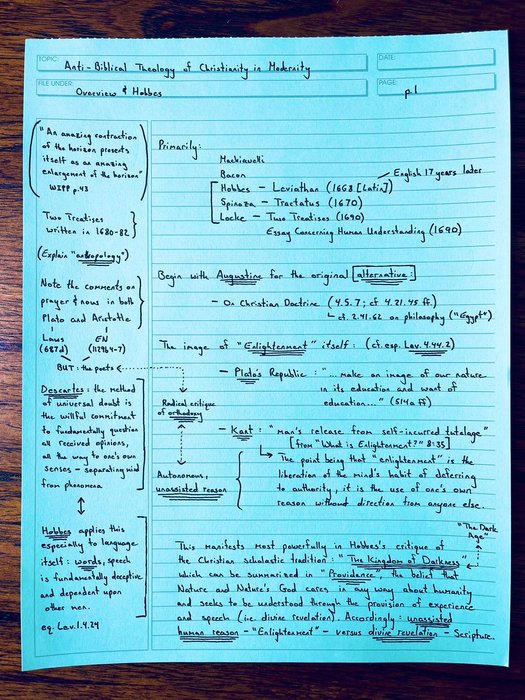 TOPIC: Anti-Biblical Theology of Christianity in Modernity
DATE:
FILE UNDER: Overview & Hobbes
PAGE: p.1
"An amazing contraction
of the horizon presents
itself as an amazing
enlargement of the horizon"
WIPP p.43
Two Treatises
written in 1680-82
(Explain "anthropology")
Note the comments on
prayer & nous in both
Plato and Aristotle
Laws
(687d)
EN
(1129b4-7)
BUT: the poets
Descartes: the method
of universal doubt is
the willful commitment
to fundamentally question
all received opinions,
all the way to one's own
senses - separating mind
from phenomena
Hobbes applies this
especially to language
itself: words, speech
is fundamentally deceptive
and dependent upon
other men.
eg. Lev. 1.4.24
Primarily:
Machiavelli
Bacon
English 17 years later
Hobbes - Leviathan (1668 [Latin])
Spinoza - Tractatus (1670)
Locke - Two Treatises (1690)
Essay Concerning Human Understanding (1690)
Begin with Augustine for the original alternative:
- On Christian Doctrine (4.5.7; cf 4.21.45 ff.)
cf. 2.41.62 on philosophy ("Egypt")
The image of "Enlightenment" itself: (cf. esp. Lev. 4.44.2)
- Plato's Republic: "... make an image of our nature
in its education and want of
education..." (514a ff)
Radical critique
of orthodoxy
- Kant: "man's release from self-incurred tutelage"
[from "What is Enlightenment?" 8:35]
The point being that "enlightenment" is the
liberation of the mind's habit of deferring
to authority, it is the use of one's own
reason without direction from anyone else.
Autonomous,
unassisted reason
"The Dark
Age"
This manifests most powerfully in Hobbes's critique of
the Christian scholastic tradition: "The Kingdom of Darkness"
which can be summarized in "Providence," the belief that
Nature and Nature's God cares in any way about humanity
and seeks to be understood through the provision of experience
and speech (i.e. divine revelation). Accordingly: unassisted
human reason - "Enlightenment" - versus divine revelation - Scripture.